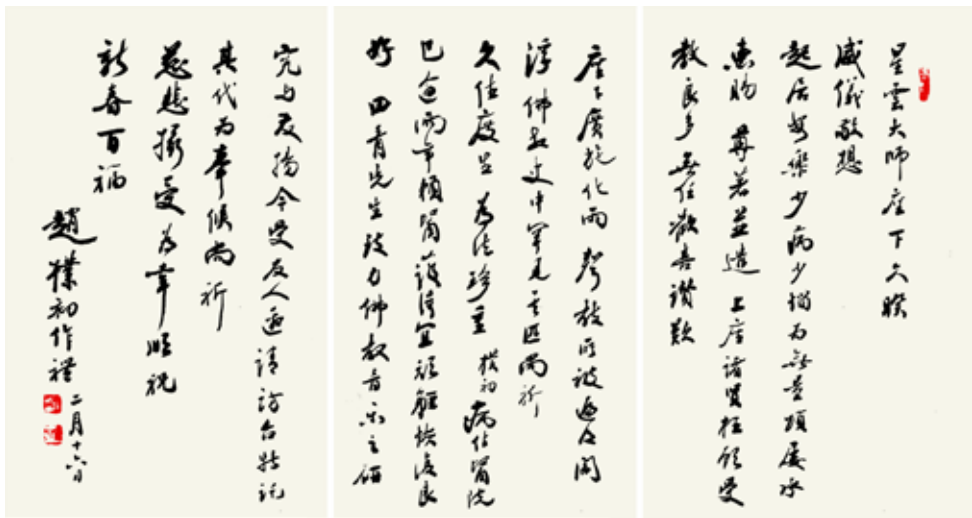 星雲大師座下久睽
威儀敬想
起居安樂少病少惱為無量頌屢承
惠賜 尊著並 上座諸賢枉顧受
教良多無任歡喜讚歎
座下廣施化雨聲教所被遍及閻
浮佛教史中罕見其匹尚祈
久住度 為法珍重 樸初病住醫院
已逾兩年 醫護得宜頑軀恢復良
好 田青先生致力佛教音樂之研
究与 揚今受友人邀請訪台特託
其代為奉候尚祈
慈悲攝受為幸順祝
新春百福
趙樸初作禮
二月十六日